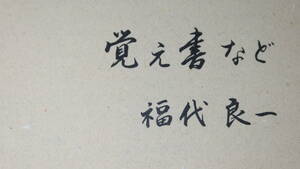 覚え書など
福代良一